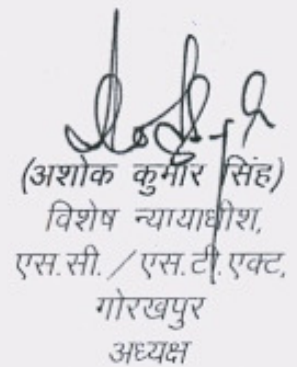 (अशोक कुमार सिंह)
विशेष न्यायाधीश,
एस.सी. / एस.टी.एक्ट,
गोरखपुर
अध्यक्ष